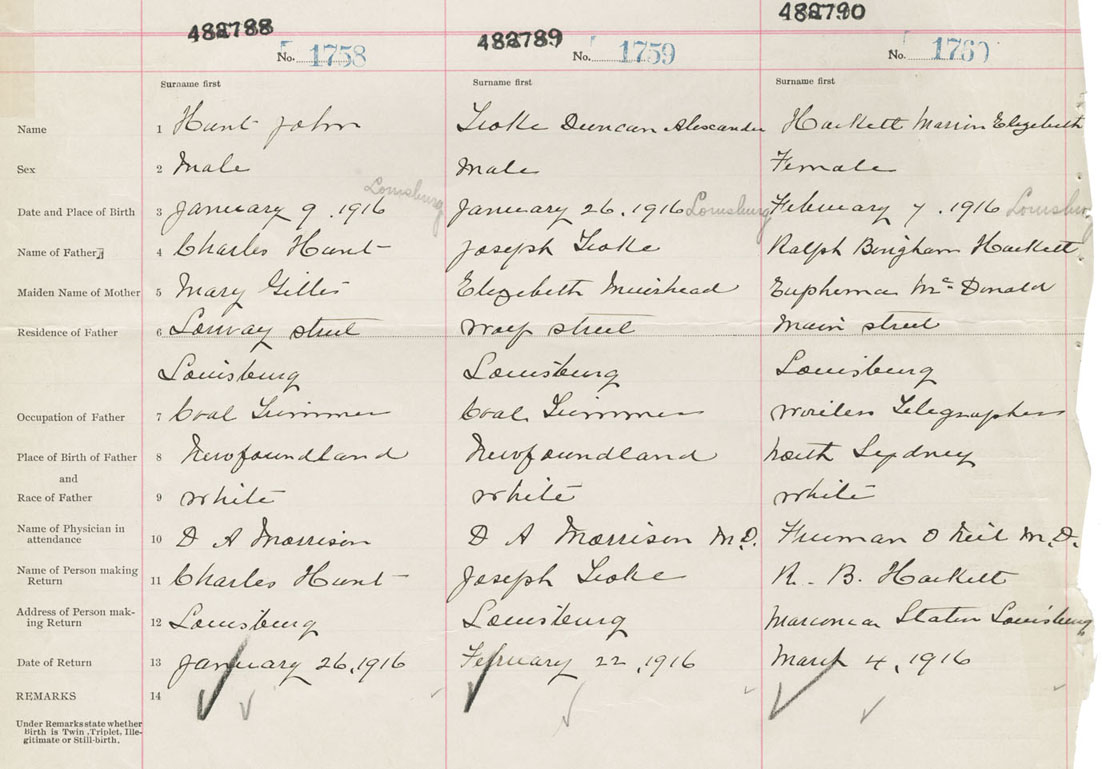 482788 482789 482790
No. 1758 No. 1759 No. 1760
Surname first Surname first Surname first
Name 1 Hunt John Duncan Alexander Hackett Marion Elizabeth
Sex 2 Male Male Female
Louisburg
Date and Place of Birth 3 January 9, 1916 January 26, 1916 Louisburg February 7, 1916 Louisburg
Name of Father 4 Charles Hunt Joseph Ralph Bingham Hackett
Maiden Name of Mother 5 Mary Gillis Elizabeth Muirhead Euphemia McDonald
Residence of Father 6 street street Main street
Louisburg Louisburg Louisburg
Occupation of Father 7 Coal Trimmer Coal Trimmer Wireless Telegrapher
Place of Birth of Father 8 Newfoundland Newfoundland North Sydney
and
Race of Father 9 White White White
Name of Physician in
attendance 10 D A Morrison D A Morrison M.D. Freeman O Neil M.D.
Name of Person making
Return 11 Charles Hunt Joseph R. B. Hackett
Address of Person mak-
ing Return 12 Louisburg Louisburg Station Louisburg
Date of Return 13 January 26, 1916 February 22, 1916 March 4, 1916
REMARKS 14
Under Remarks state whether
Birth is Twin, Triplet, Ille-
gitimate or Still-birth.